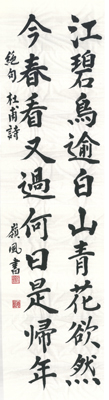 江碧鳥逾白山青花欲然
今春看又過何日是歸年
絶句 杜甫詩
嶺風書